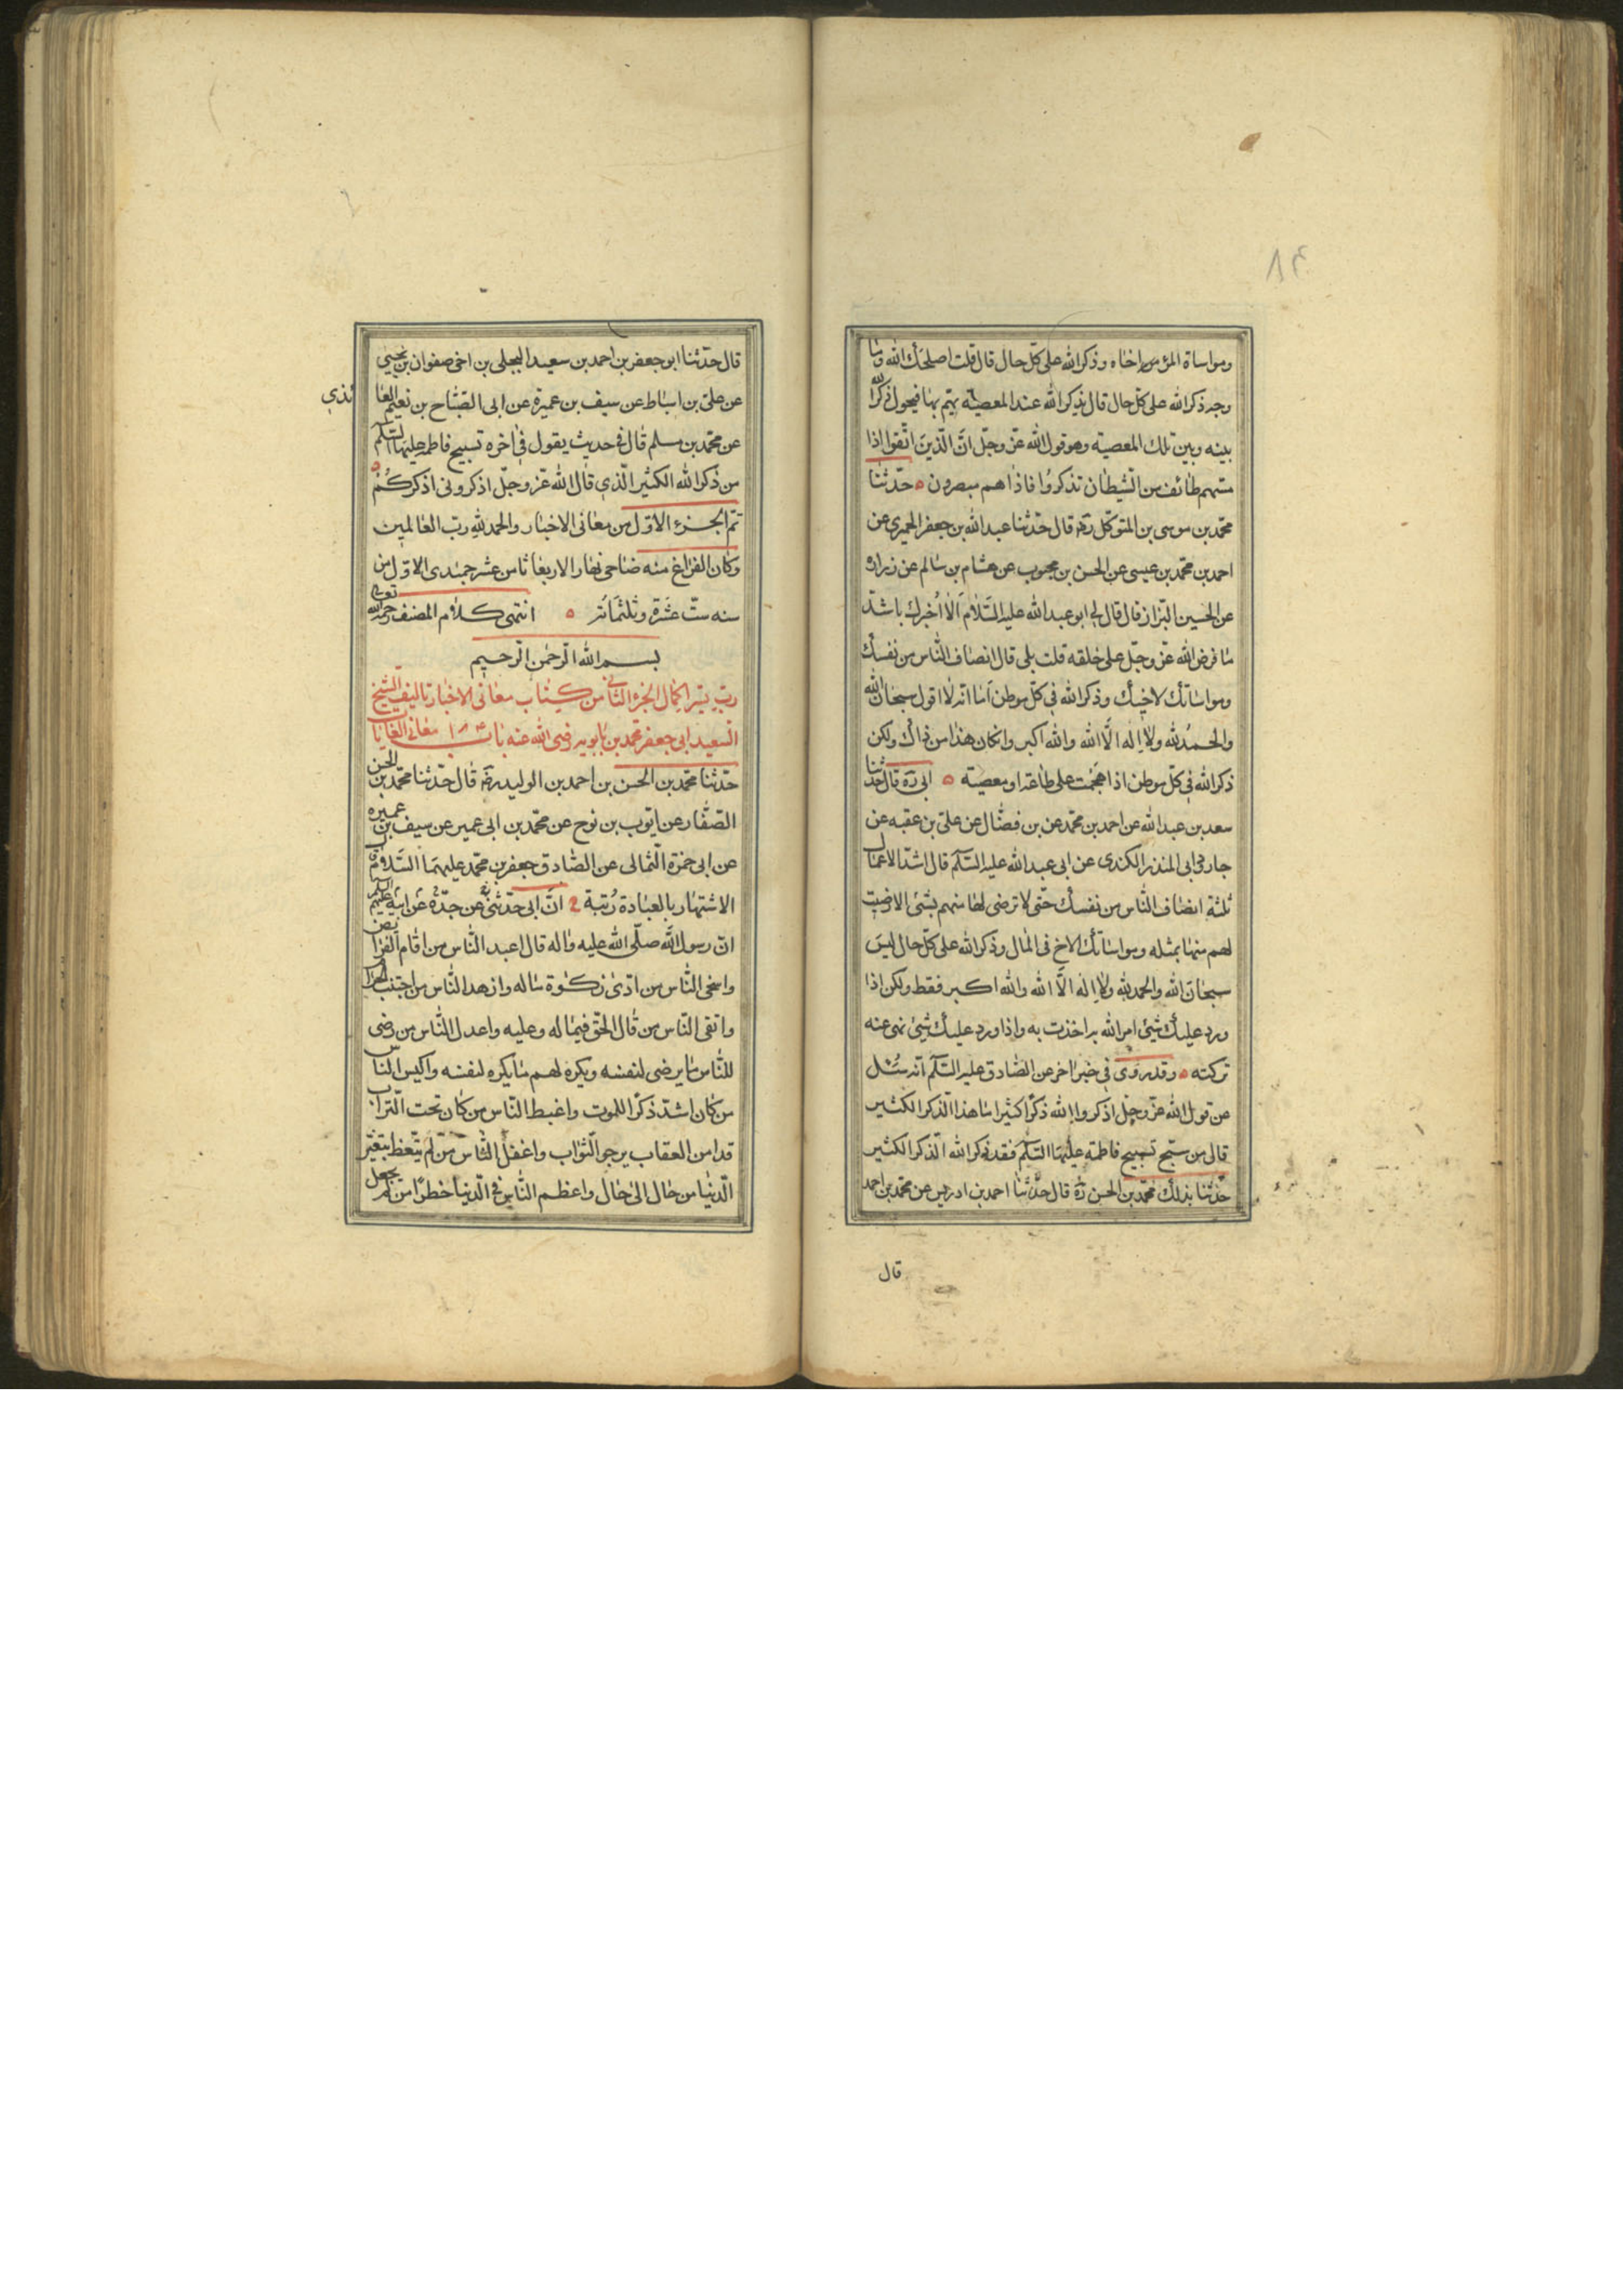 ٨٤
ومواساة المؤمن اخاه وذكر الله على كل حال قال قلت اصلحك الله وما
وجه ذكر الله على كل حال قال يذكر الله عند المعصية يهم بها فيحول ذكر الله
بينه وبين تلك المعصية وهو قول الله عز وجل ان الذين اتقوا اذا
مسهم طائف من الشيطان تذكروا فاذا هم مبصرون ٥ حدثنا
محمد بن موسى بن المتوكل ره قال حدثنا عبد الله بن جعفر الحميري عن
احمد بن محمد بن عيسى عن الحسن بن محبوب عن هشام بن سالم عن زراره
عن الحسين البزاز قال قال لي ابو عبد الله عليه السلام الا اخبرك باشد
ما فرض الله عز وجل على خلقه قلت بلى قال انصاف الناس من نفسك
ومواساتك لاخيك وذكر الله في كل موطن اما انه لا اقول سبحان الله
والحمد لله ولا اله الا الله والله اكبر وان كان هذا من ذاك ولكن
ذكر الله في كل موطن اذا هجمت على طاعة او معصية ٥ ابى ره قال حدثنا
سعد بن عبد الله عن احمد بن محمد عن بن فضال عن على بن عقبه عن
جارود ابى المنذر الكندى عن ابى عبد الله عليه السلم قال اشد الاعمال
ثلثة انصاف الناس من نفسك حتى لا ترضى لها منهم بشئ الا رضيت
لهم منها بمثله ومواساتك الاخ فى المال وذكر الله على كل حال ليس
سبحان الله والحمد لله ولا اله الا الله والله اكبر فقط ولكن اذا
ورد عليك شئ امر الله به اخذت به واذا ورد عليك شئ نهى عنه
تركته ٥ وقد روى في خبر اخر عن الصادق عليه السلم انه سئل
عن قول الله عز وجل اذكروا الله ذكرا كثيرا ما هذا الذكر الكثير
قال من سبح تسبيح فاطمة عليها السلم فقد ذكر الله الذكر الكثير
حدثنا بذلك محمد بن الحسن ره قال حدثنا احمد بن ادريس عن محمد بن احمد
قال
قال حدثنا ابو جعفر بن احمد بن سعيد البجلى بن اخى صفوان بن يحيى
عن على بن اسباط عن سيف بن عميرة عن ابى الصباح بن نعيم العا
ئذي
عن محمد بن مسلم قال فى حديث يقول فى اخره تسبيح فاطمه عليها السلم
من ذكر الله الكثير الذي قال الله عز وجل اذكرونى اذكركم ٥
تم الجزء الاول من معانى الاخبار والحمد لله رب العالمين
وكان الفراغ منه ضاحى نهار الاربعا ثامن عشر جمیدى الاول من
سنه ست عشرة وثلثمائة ٥ انتهى كلام المصنف رحمه الله تعالى
بسم الله الرحمن الرحيم
رب يسر اكمال الجزء الثانى من كتاب معانى الاخبار تاليف الشيخ
السعيد ابى جعفر محمد بن بابويه رضى الله عنه باب معانى الغايات
حدثنا محمد بن الحسن بن احمد بن الوليد ره قال حدثنا محمد بن الحسن
الصفار عن ايوب بن نوح عن محمد بن ابى عمير عن سيف بن عميره
عن ابى حمزة الثمالى عن الصادق جعفر بن محمد عليهما السلام قال
الاشتهار بالعبادة ريبة ان ابى حدثنى عن ابيه عن جده عليهم السلم
ان رسول الله صلى الله عليه واله قال اعبد الناس من اقام الفرايض
واسخى الناس من ادى زكوة ماله وازهد الناس من اجتنب الحرام
واتقى الناس من قال الحق فيما له وعليه واعدل الناس من رضى
للناس ما يرضى لنفسه ويكره لهم ما يكره لنفسه واكيس الناس
من كان اشد ذكرا للموت واغبط الناس من كان تحت التراب
قد امن العقاب يرجو الثواب واغفل الناس من لم يتعظ بتغير
الدنيا من حال الى حال واعظم الناس فى الدنيا خطرا من لم يجعل